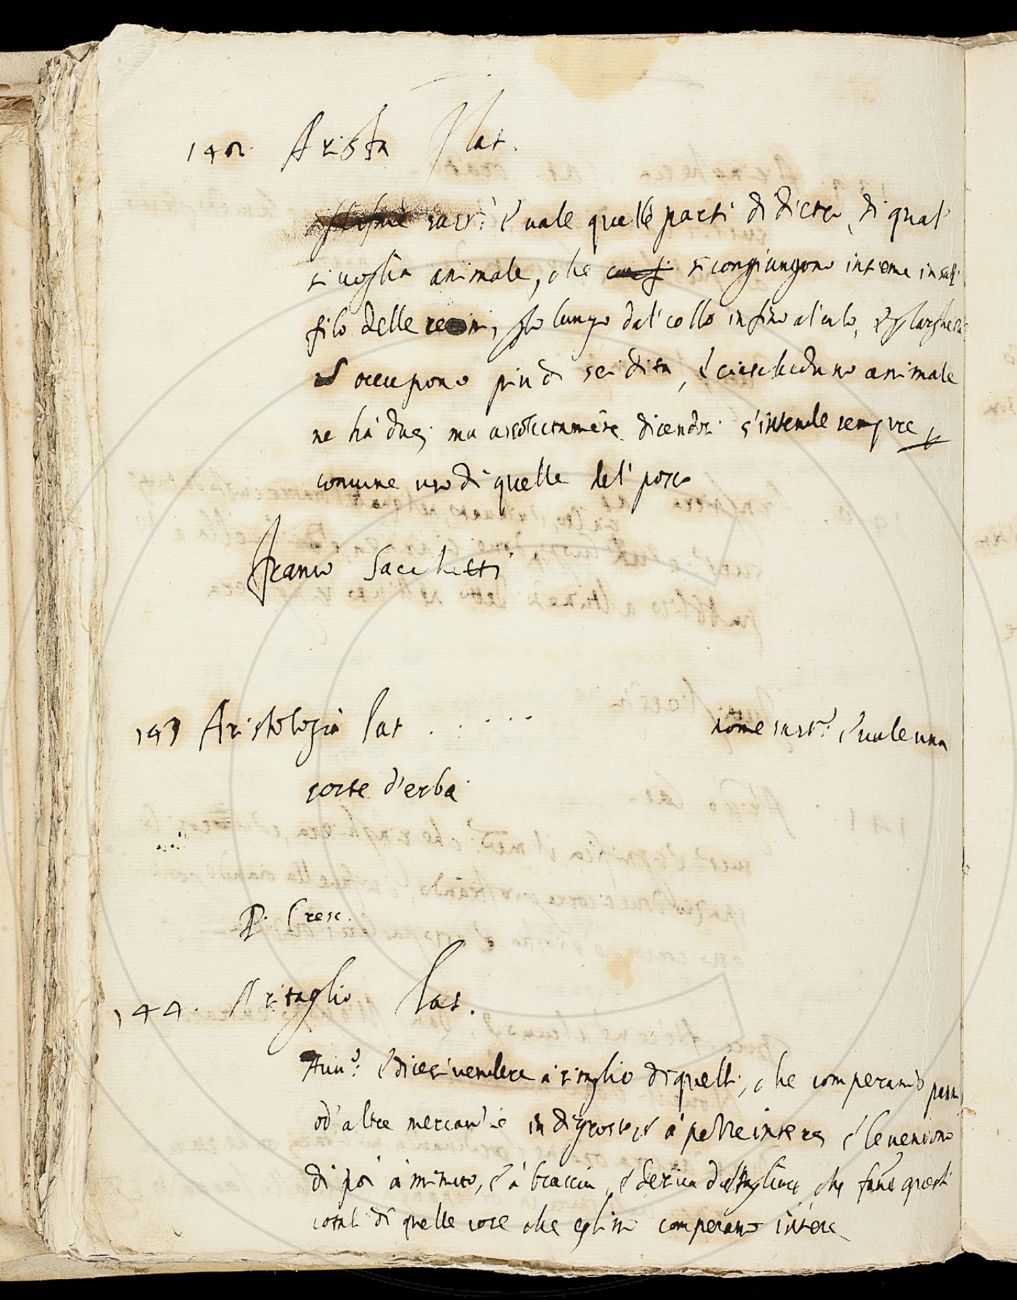 142. Arista Lat.
sust.º è vale quelle parti di dietro, di qual
si voglia animale, che si congiungono insieme in sul
filo delle reni, per lo lungo dal collo infino al culo, e per larghezza
occupono più di sei dita, e ciascheduno animale
ne hà due, ma assolutamẽte dicendosi s'intende sempre per
comune uso di quelle del porco
Franco Sacchetti
143 Aristologia Lat . . . . . nome sust.º è vale una
sorte d'erba
P. Cresc.
144. Aritaglio Lat.
Avv.º è dicesi vendere à ritaglio di quelli, che comperano panni
od' altre mercanzie in digrosso à pezze intere e le vendono
di poi à minuto, e à braccia, e deriva dal tagliare, che fanno questi
cotali di quelle cose che eglino comperano intere